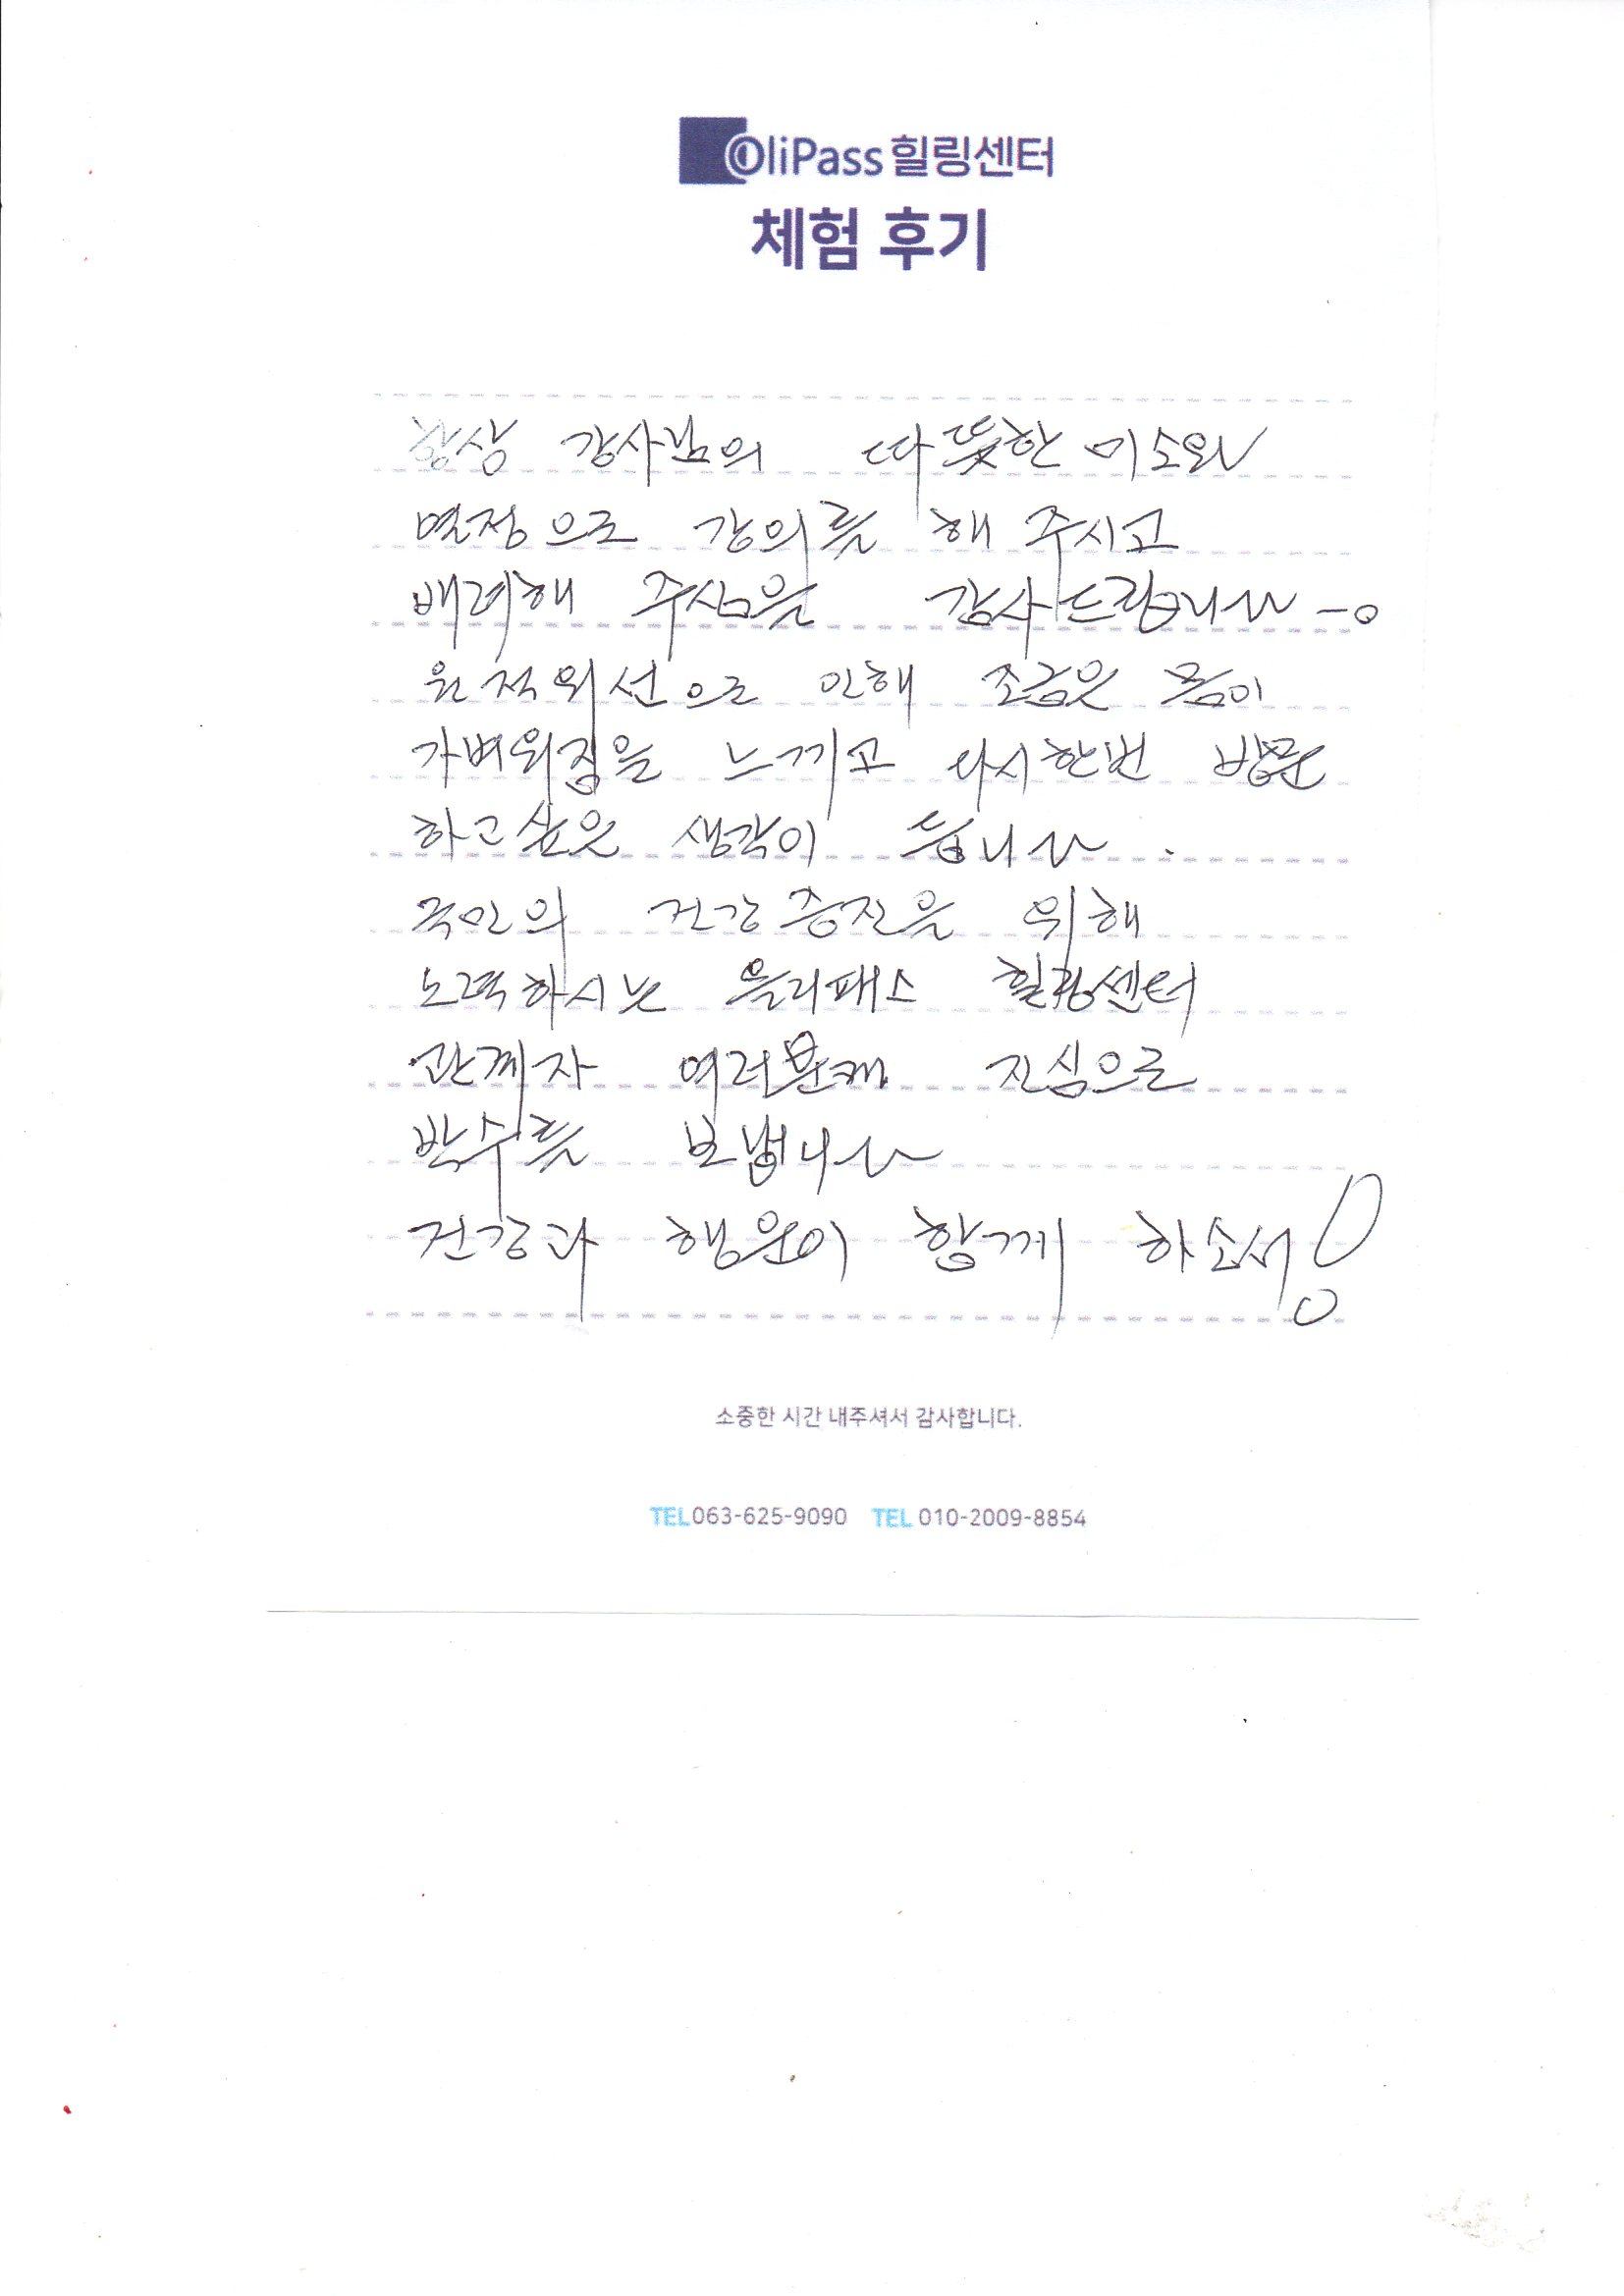 OliPass 힐링센터
체험 후기
항상 강사님의 따뜻한 미소와
열정으로 강의를 해 주시고
배려해 주심을 감사드립니다 -。
원적외선으로 인해 조금은 몸이
가벼워짐을 느끼고 다시한번 방문
하고싶은 생각이 듭니다.
국민의 건강증진을 위해
노력하시는 올리패스 힐링센터
관계자 여러분께 진심으로
박수를 보냅니다
건강과 행운이 함께 하소서!
소중한 시간 내주셔서 감사합니다.
TEL 063-625-9090 TEL 010-2009-8854